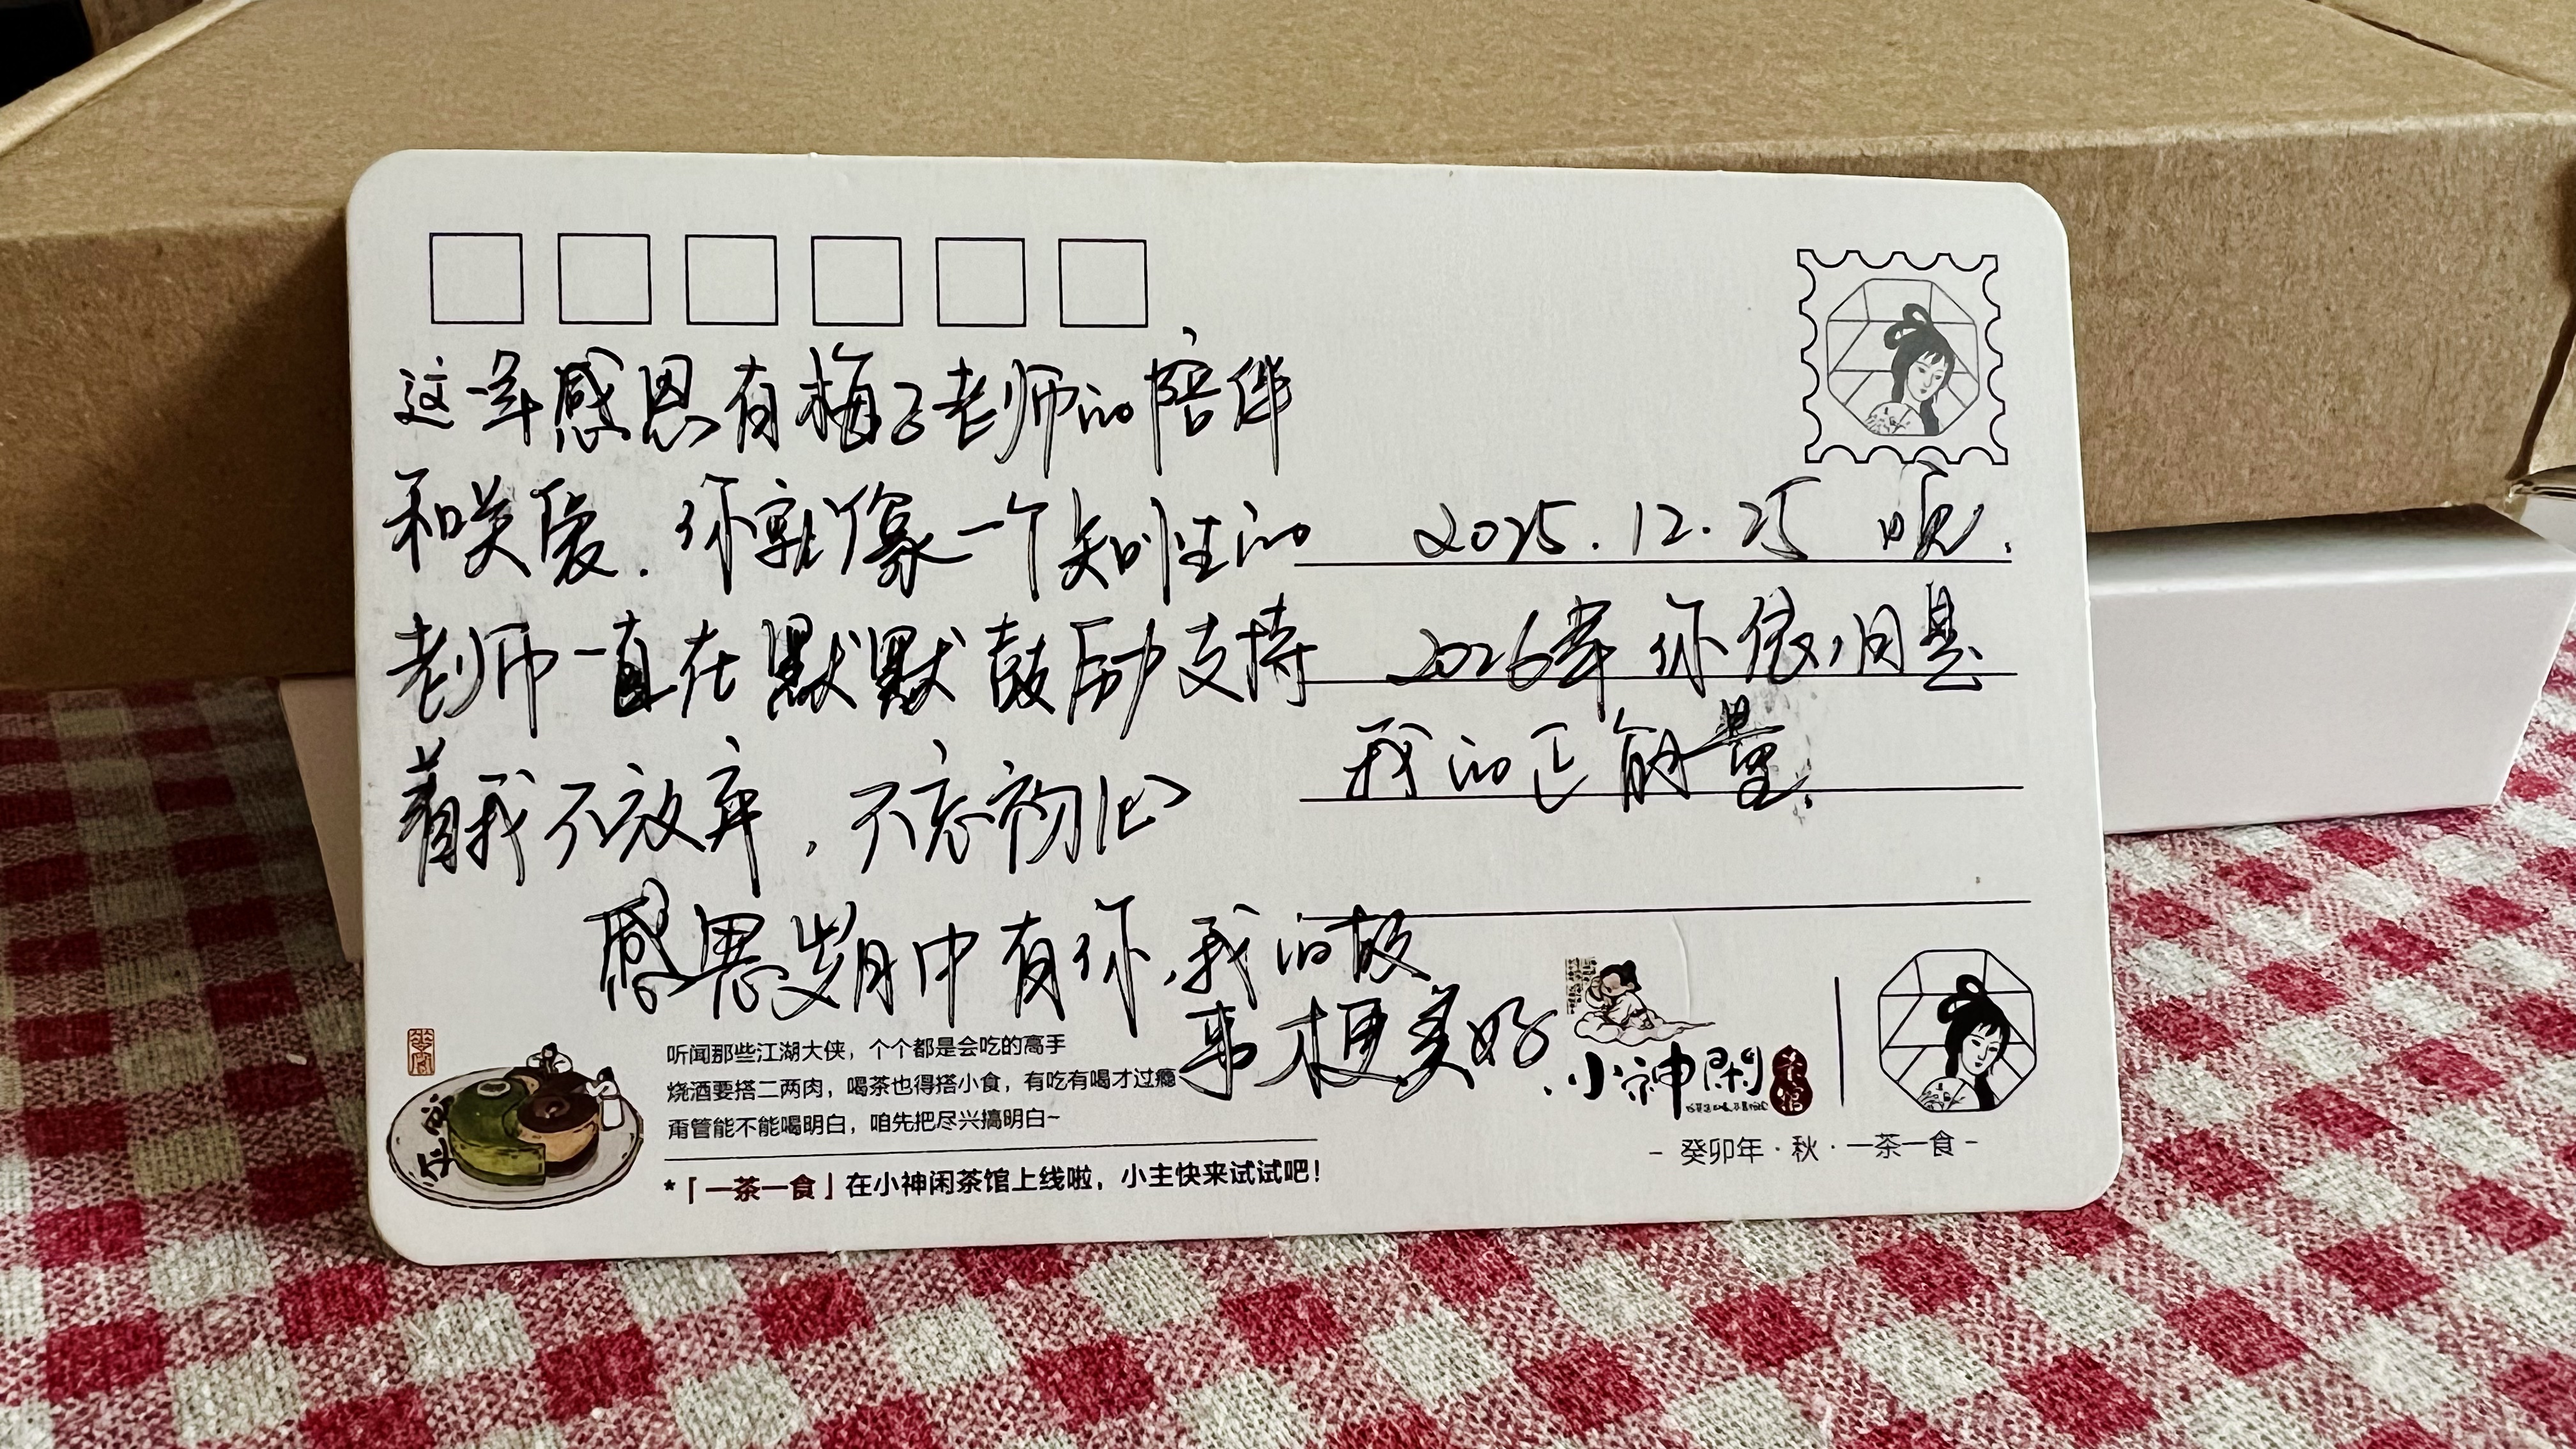 这一年感恩有梅子老师的陪伴
和关爱．你就像一个知性的
老师一直在默默鼓励支持
着我不放弃，不忘初心
感恩岁月中有你，我的故
事才更美好．
2025.12.25
2026年你依旧是
我的正能量．
听闻那些江湖大侠，个个都是会吃的高手
烧酒要搭二两肉，喝茶也得搭小食，有吃有喝才过瘾
甭管能不能喝明白，咱先把尽兴搞明白~
*「一茶一食」在小神闲茶馆上线啦，小主快来试试吧！
小神閑 茶馆
- 癸卯年 · 秋 · 一茶一食 -